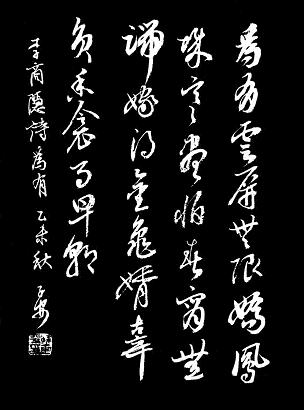 為有雲屏無限嬌鳳
城寒盡怕春宵無
端嫁得金龜婿辜
負香衾事早朝
李商隱詩為有 乙未秋